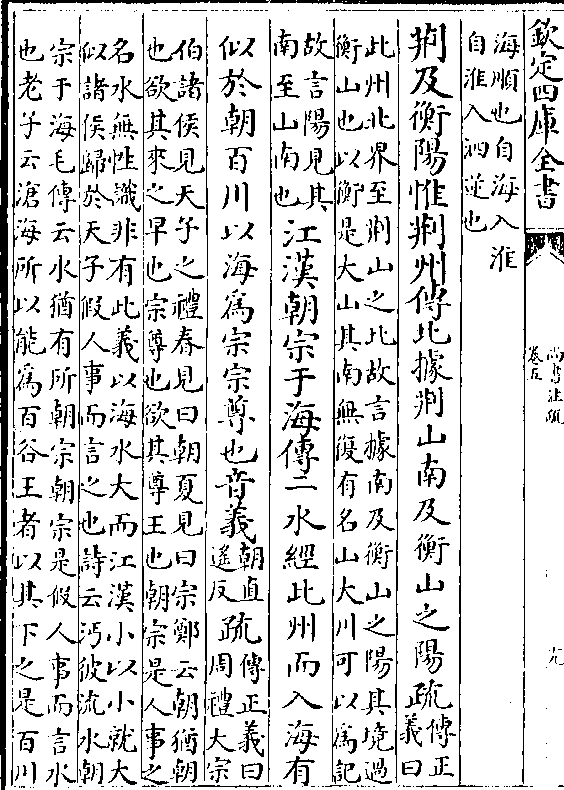 欽定四庫全書
尚書注疏
卷五
九
海順也自海入淮
自淮入泗逆也
荆及衡陽惟荆州傳北據荆山南及衡山之陽疏傳正
義曰
此州北界至荆山之北故言據南及衡山之陽其境過
衡山也以衡是大山其南無復有名山大川可以為記
故言陽見其
南至山南也江漢朝宗于海傳二水經此州而入海有
似於朝百川以海為宗宗尊也音義朝直
遙反疏傳正義曰
周禮大宗
伯諸侯見天子之禮春見曰朝夏見曰宗鄭云朝猶朝
也欲其來之早也宗尊也欲其尊王也朝宗是人事之
名水無性識非有此義以海水大而江漢小以小就大
似諸侯歸於天子假人事而言之也詩云沔彼流水朝
宗于海毛傳云水猶有所朝宗朝宗是假人事而言水
也老子云滄海所以能為百谷王者以其下之是百川